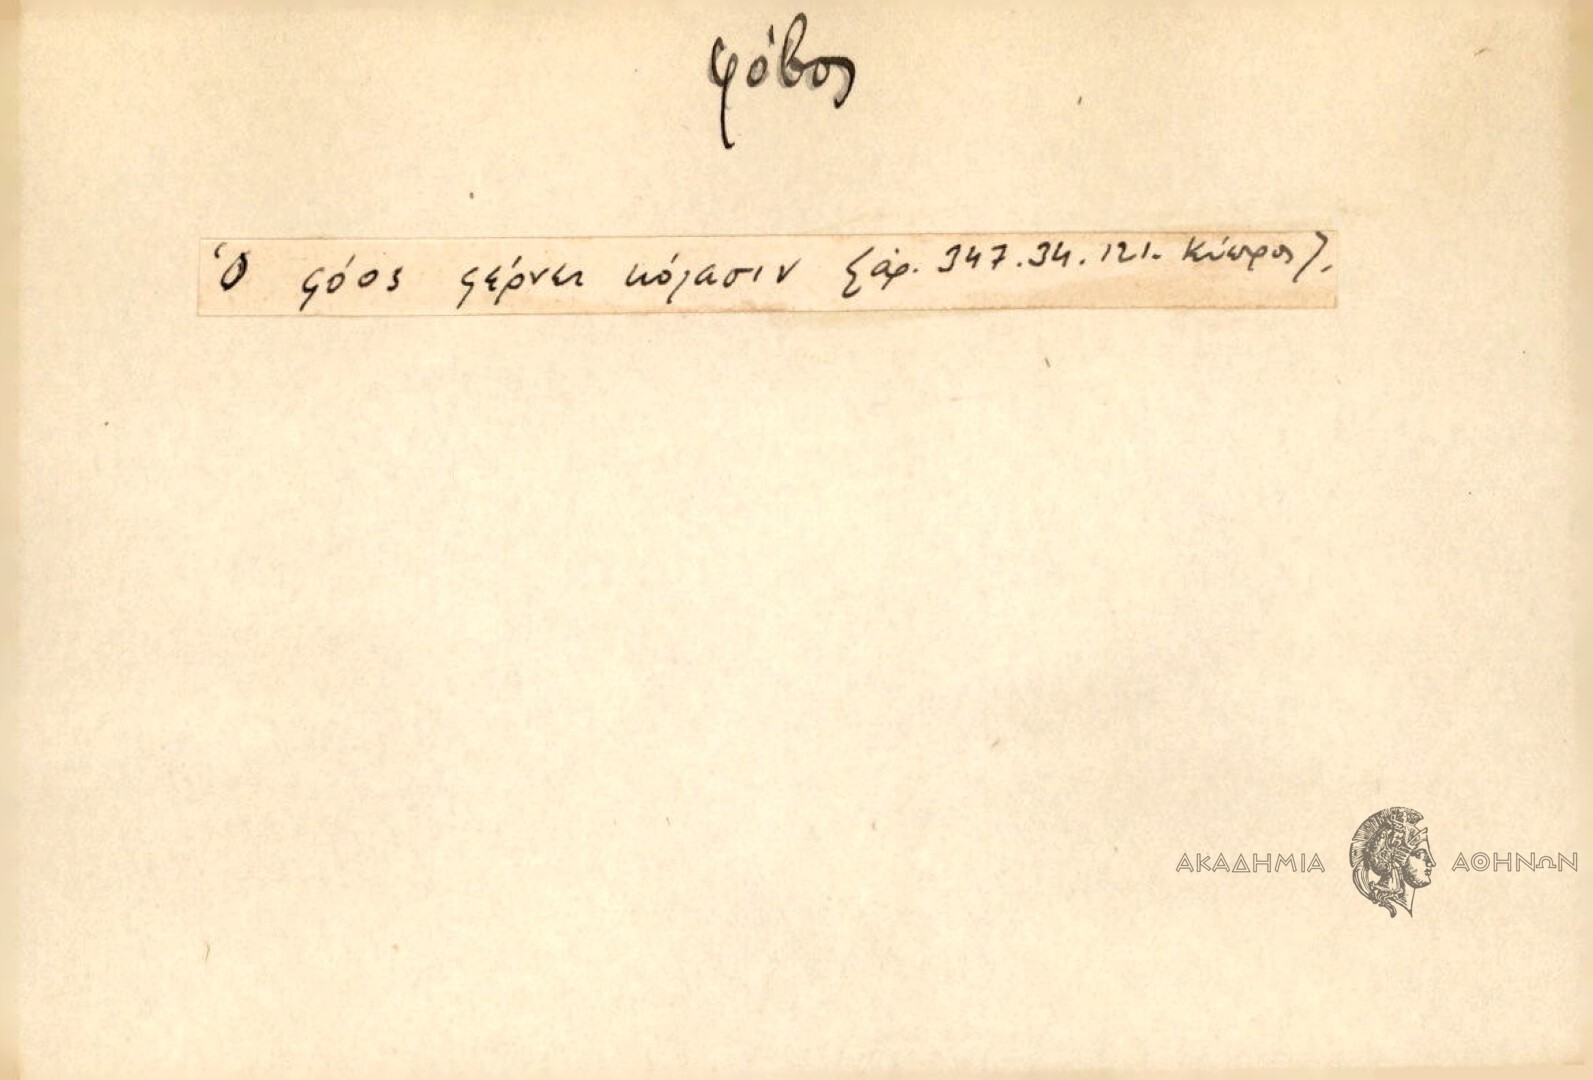 φόβος
Ὁ φόος φέρνει κόλασιν {ἀρ. 347.34.121. Κύπρος}.
ΑΚΑΔΗΜΙΑ ΑΘΗΝΩΝ